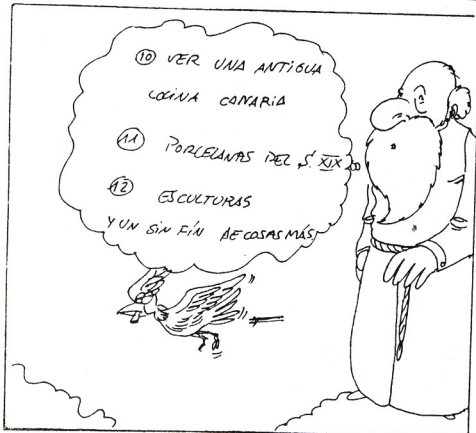 10 VER UNA ANTIGUA
COCINA CANARIA
11 PORCELANAS DEL S. XIX
12 ESCULTURAS
Y UN SIN FÍN DE COSAS MÁS